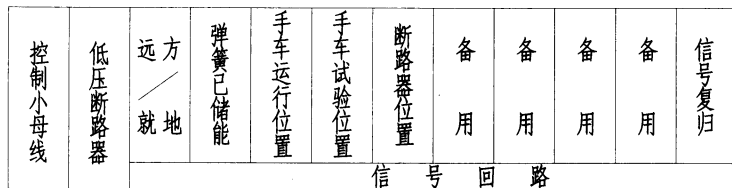 控制小母线
低压断路器
远方／就地
弹簧已储能
手车运行位置
手车试验位置
断路器位置
备用
备用
备用
备用
信号复归
信号回路